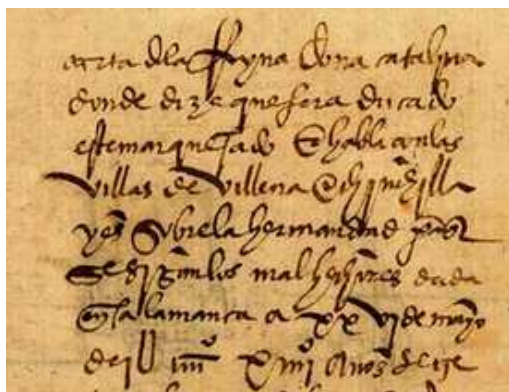 carta dla Reyna doña catalina
donde dize que sera ducado
este marquesado E habla con las
villas de villena E chinchilla
y es sobre la hermandad
se sigan los malhechores dada
en salamanca a xx vj de mayo
de